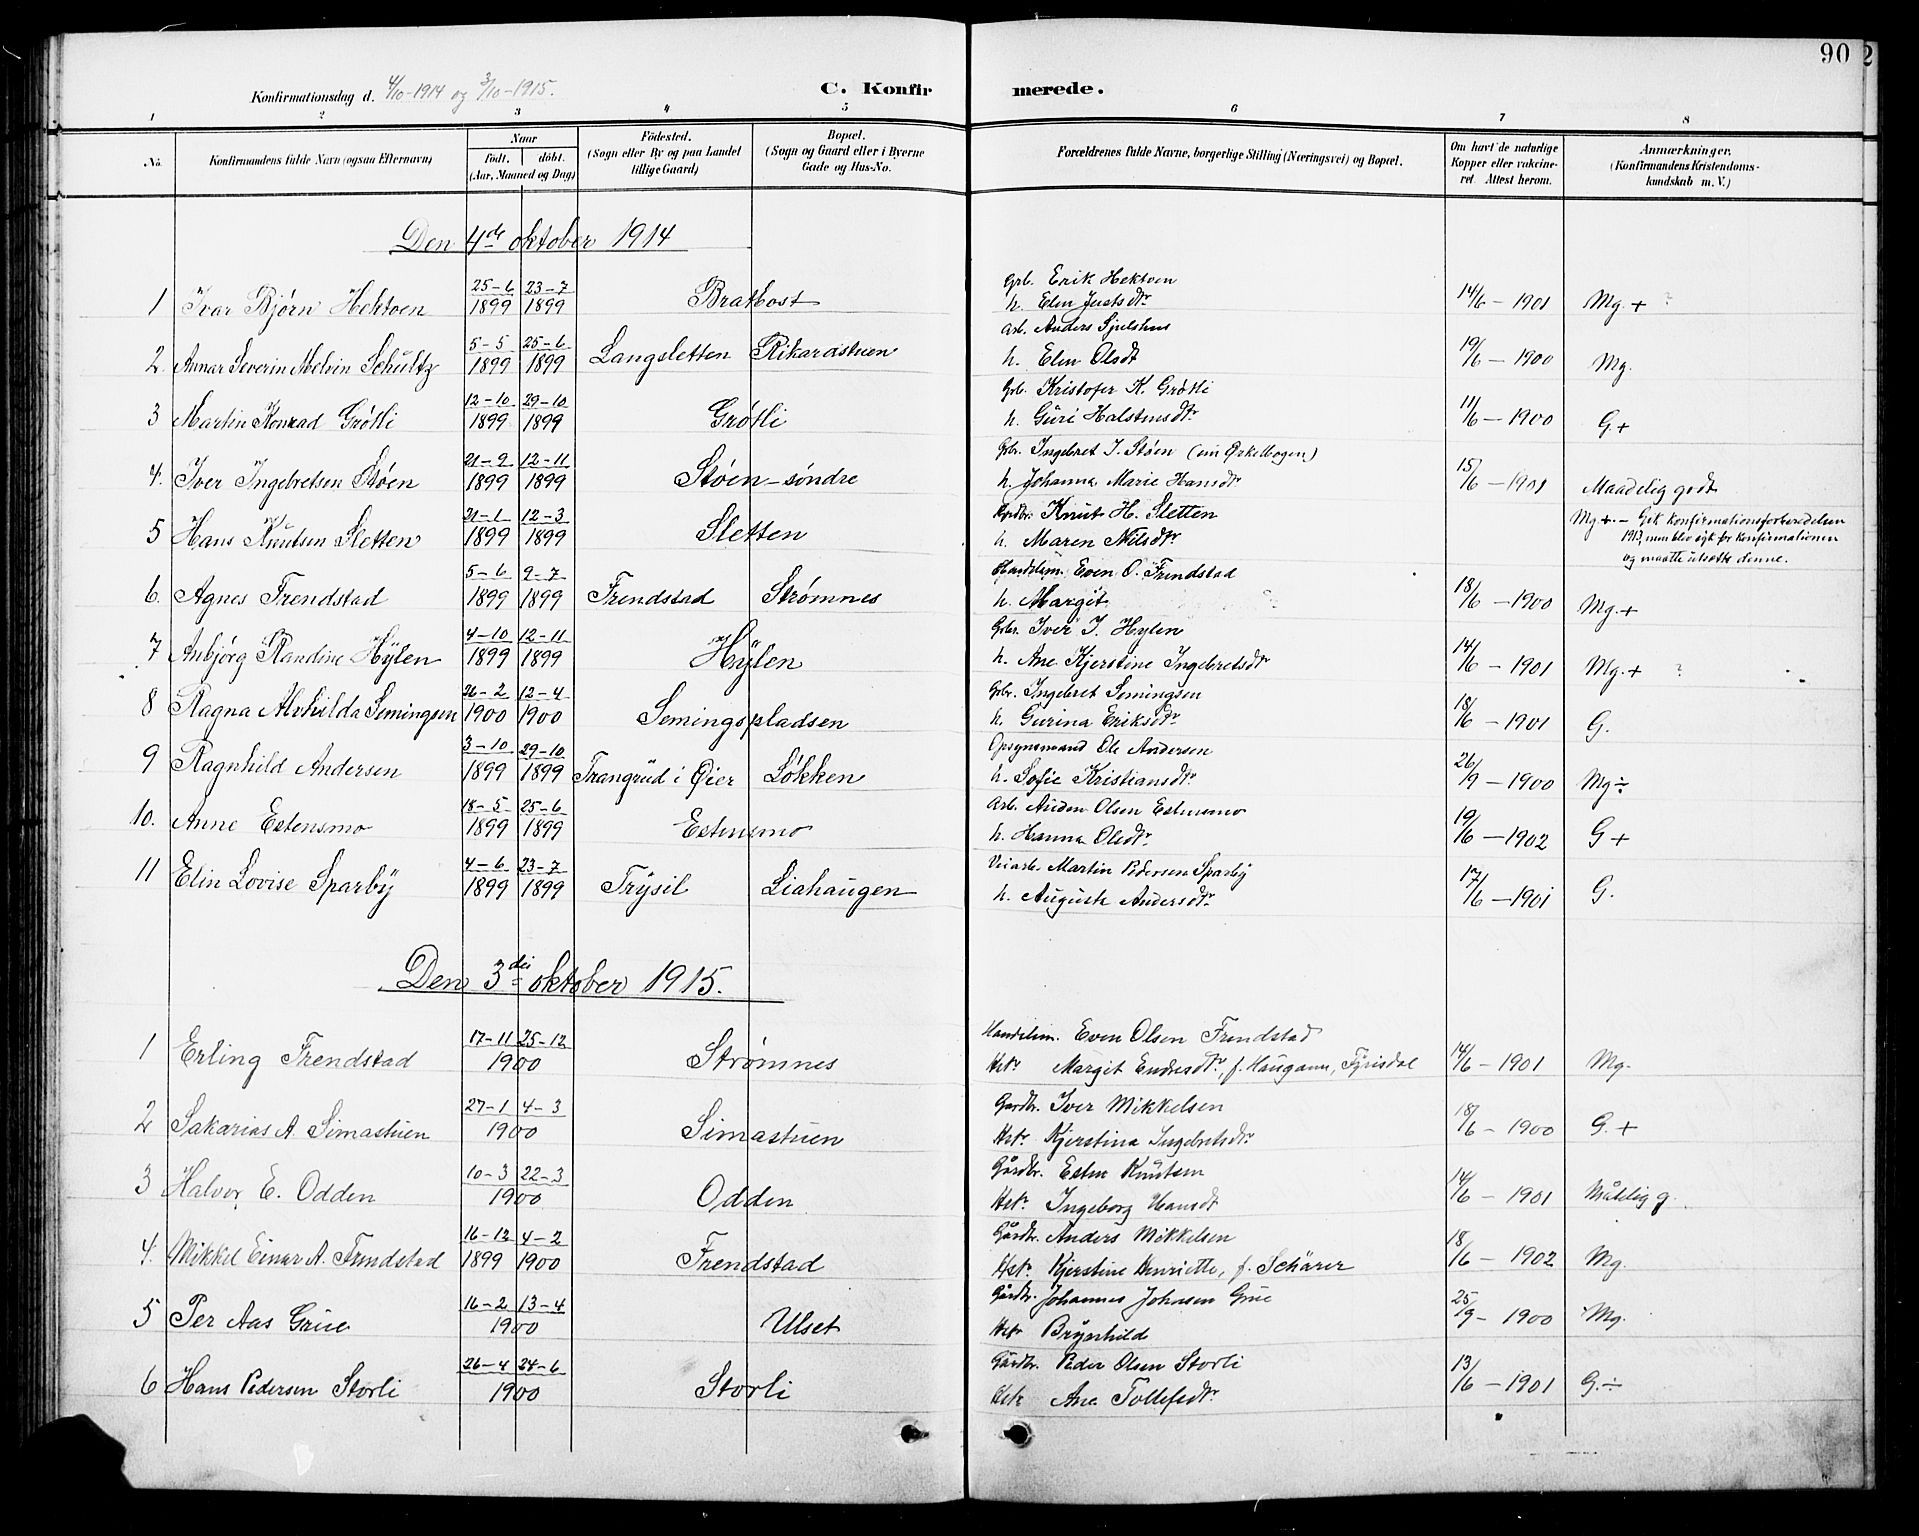 90 2
Konfirmationsdag d. 4/10-1914 og 3/10-1915.
C. Konfirmerede.
1 2 3 4 5 6 7 8
No. Konfirmandens fulde Navn (ogsaa Efternavn) Naar født. døbt. (Aar, Maaned og Dag) Fødested. (Sogn eller By og paa Landet tillige Gaard) Bopæl. (Sogn og Gaard eller i Byerne Gade og Hus-No. Forældrenes fulde Navne, borgerlige Stilling (Næringsvei) og Bopæl. Om havt de naturlige Kopper eller vakcineret. Attest herom. Anmærkninger. (Konfirmandens Kristendomskundskab m. V.)
Den 4de oktober 1914
1 Ivar Bjørn Hektoen 25-6 1899 23-7 1899 Bratbost Grb. Erik Hektoen h. Elin Justsdtr 14/6-1901 Mg.+ ?
2. Annar Severin Melvin Schultz 5-5 1899 25-6 1899 Langsletten Rikardstuen Arb. Anders h. Elin Olsdt 19/6-1900 Mg.
3 Martin Konrad Grøtli 12-10 1899 29-10 1899 Grøtli Grb. Kristofer K. Grøtli h. Guri Halstensdtr 11/6-1900 G+
4. Iver Ingebretsen Støen 21-9 1899 12-11 1899 Støen-søndre Gbr. Ingebret I. Støen h. Johanna Marie Hansdtr 15/6-1901 Maadelig godt
5 Hans Knutsen Sletten 21-1 1899 12-3 1899 Sletten Gardbr. Knut H. Sletten h. Maren Nilsdtr Mg+. - Gik konfirmationsforberedelsen 1913, men blev syk før konfirmationen og maatte utsætte denne.
6. Agnes Frendstad 5-6 1899 9-7 1899 Frendstad Strømnes Handelsm. Even O. Frendstad h. Margit 18/6-1900 Mg.+
7 Anbjørg Randine Hylen 4-10 1899 12-11 1899 Hylen Gbr. Iver I. Hylen h. Ane Kjerstine Ingebretsdtr 14/6-1901 Mg.+ ?
8 Ragna Alvhilda Semingsen 26-2 1900 12-4 1900 Semingspladsen Gbr. Ingebret Semingsen h. Gurina Eriksdtr 18/6-1901 G.
9 Ragnhild Andersen 3-10 1899 29-10 1899 Trangrud i Øier Løkken Opsynsmand Ole Andersen h. Sofie Kristiansdtr 26/9-1900 Mg÷
10. Anne Estensmo 18-5 1899 25-6 1899 Estensmo Arb. Auden Olsen Estensmo h. Hanna Olsdtr 19/6-1902 G+
11 Elin Lovise Sparby 4-6 1899 23-7 1899 Trysil Liahaugen Veiarb. Martin Pedersen Sparby h. Auguste Andersdtr 17/6-1901 G.
Den 3die oktober 1915.
1 Erling Frendstad 17-11 25-12 1900 Strømnes Handelsm. Even Olsen Frendstad Hstr Margit Endresdtr, f. Haugann, Fyrisdal 14/6-1901 Mg.
2 Sakarias A Simastuen 27-1 4-3 1900 Simastuen Gardbr. Iver Mikkelsen Hstr Kjerstina Ingebretsdtr 18/6-1900 G.+
3 Halvor E. Odden 10-3 22-3 1900 Odden Gårdbr. Esten Knutsen Hstr Ingeborg Hansdt 14/6-1901 Måtelig g.
4. Mikkel Einar A. Frendstad 16-12 1899 4-2 1900 Frendstad Gårdbr. Anders Mikkelsen Hstr Kjerstine Henriette, f. Schärer 18/6-1902 Mg.
5 Per Aas Grue 16-2 13-4 1900 Ulset Gårdbr. Johannes Johnsen Grue Hstr Brynhild 25/9-1900 Mg.
6 Hans Pedersen Storli 26-4 24-6 1900 Storli Gårdbr. Peder Olsen Storli Hstr Ane Tollefsdtr 13/6-1901 G.÷